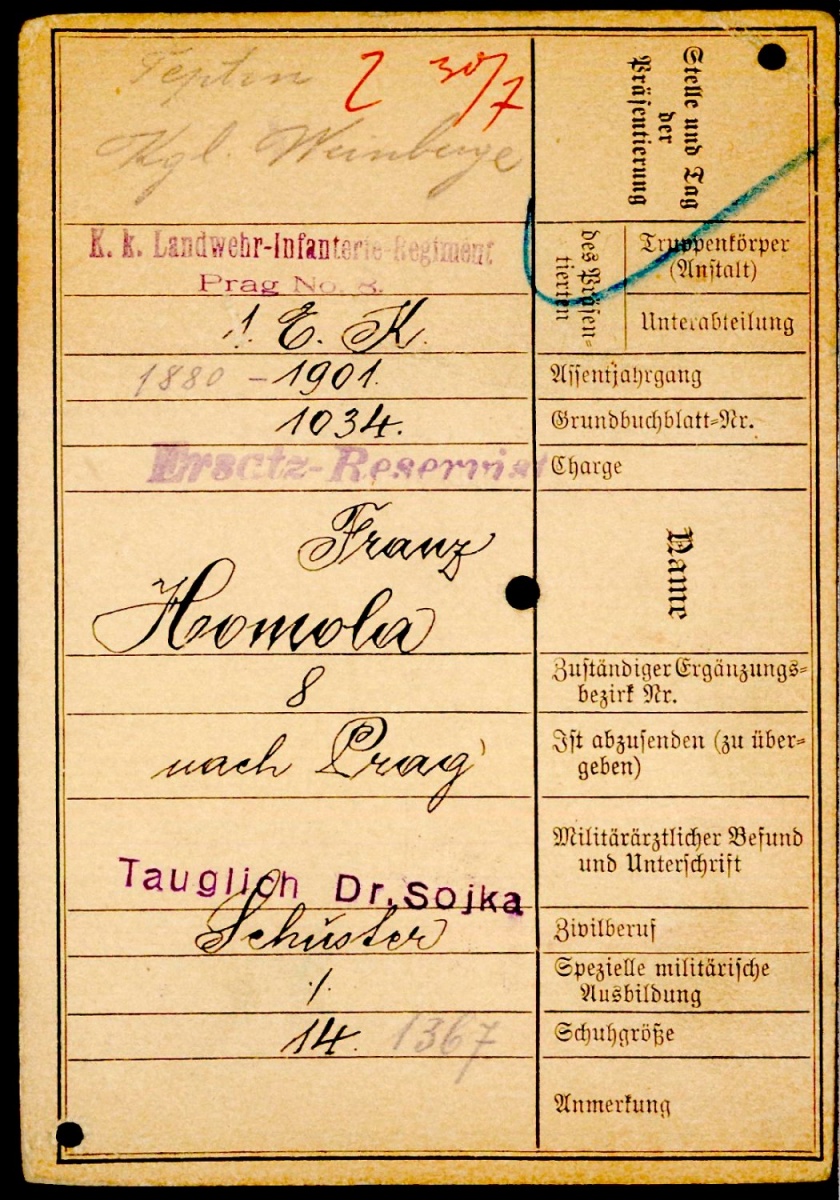 Teptin
Z 30/7
Kgl. Weinberge
Stelle und Tag
der
Präsentierung
K. k. Landwehr-Infanterie-Regiment
Prag No. 8.
des Präsen-
tierten
Truppenkörper
(Anstalt)
1. E. K.
Unterabteilung
1880 – 1901.
Assentjahrgang
1034.
Grundbuchblatt-Nr.
Ersatz-Reservist
Charge
Franz
Homola
Name
8
Zuständiger Ergänzungs-
bezirk Nr.
nach Prag
Ist abzusenden (zu über-
geben)
Tauglich Dr. Sojka
Militärärztlicher Befund
und Unterschrift
Schuster
Zivilberuf
./.
Spezielle militärische
Ausbildung
14. 1367
Schuhgröße
Anmerkung